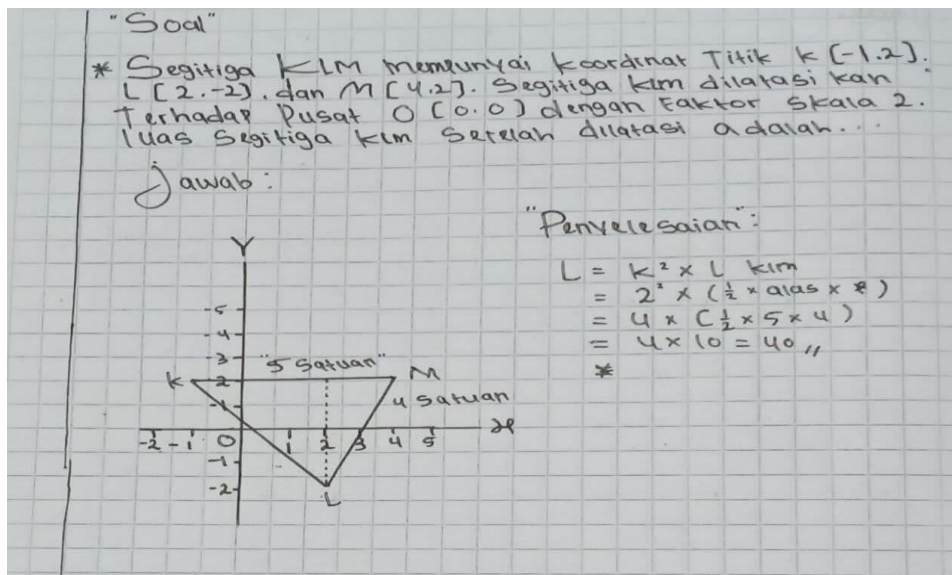 "Soal"
* Segitiga KLM mempunyai koordinat Titik K (-1.2).
L (2.-2). dan M (4.2). Segitiga klm dilatasi kan
Terhadap Pusat O (0.0) dengan Faktor Skala 2.
luas segitiga klm setelah dilatasi adalah...
Jawab:
"Penyelesaian":
L = k² x L klm
= 2² x (½ x alas x t)
= 4 x (½ x 5 x 4)
= 4 x 10 = 40,,
*
Y
5
4
3
"5 Satuan"
K 2 M
1 4 Satuan
-2 -1 0 1 2 3 4 5 x
-1
-2
L